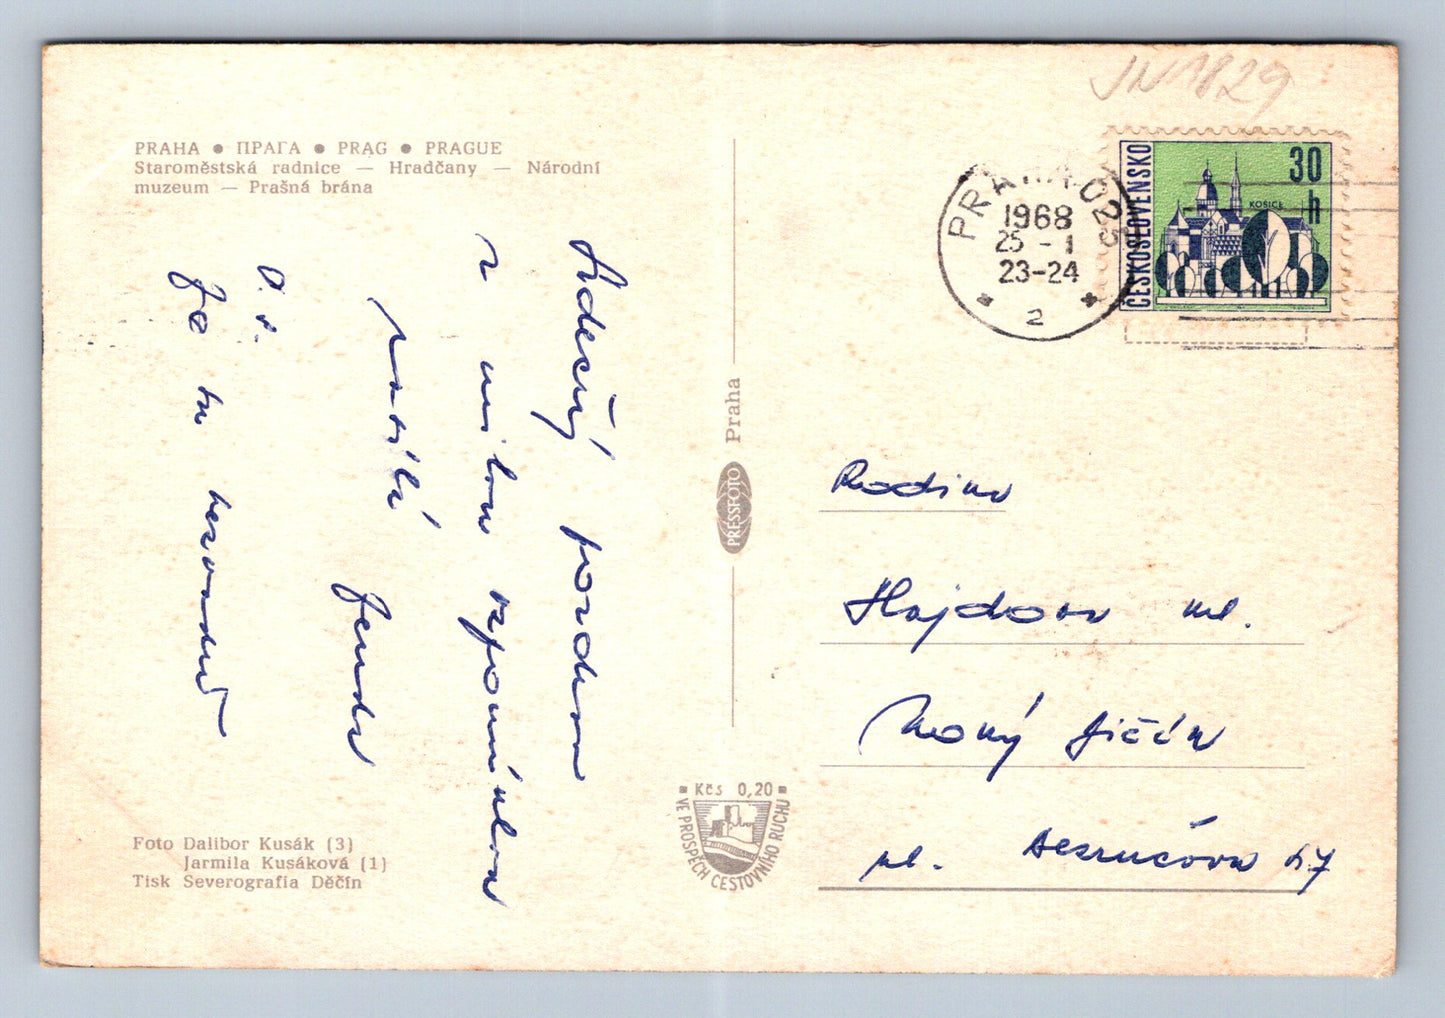 PRAHA ● ПРАГА ● PRAG ● PRAGUE
Staroměstská radnice — Hradčany — Národní
muzeum — Prašná brána
Srdečný pozdrav
z milou vzpomínkou
zasílá
Jenda
Je tu
Foto Dalibor Kusák (3)
Jarmila Kusáková (1)
Tisk Severografia Děčín
PRESSFOTO Praha
Kčs 0,20
VE PROSPĚCH CESTOVNÍHO RUCHU
JN1829
PRAHA 025
1968
25 -1
23-24
2
ČESKOSLOVENSKO
30
h
KOŠICE
Rodina
Hajdova ml.
Nový Jičín
ul. Bezručova 47